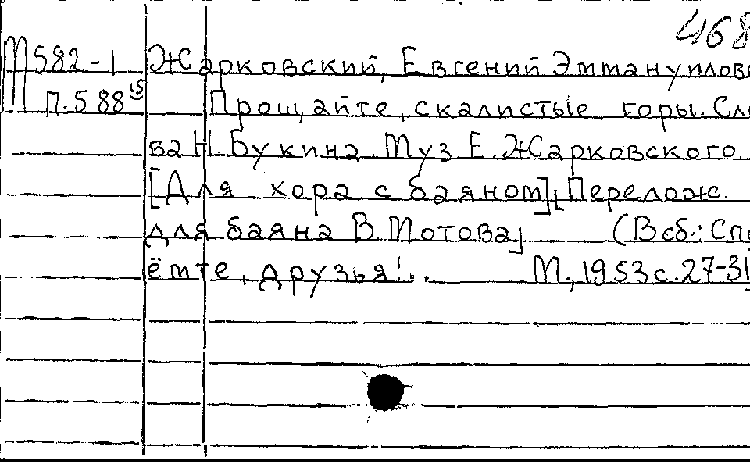 468
М582-1 Жарковский, Евгений Эммануилов
П.588 Прощайте, скалистые горы. Сло
ва Н. Букина Муз Е. Жарковского.
[Для хора с баяном]. Перелож.
для баяна В. Мотова] (В сб.: Спо
ёмте, друзья!.. М., 1953 с. 27-31